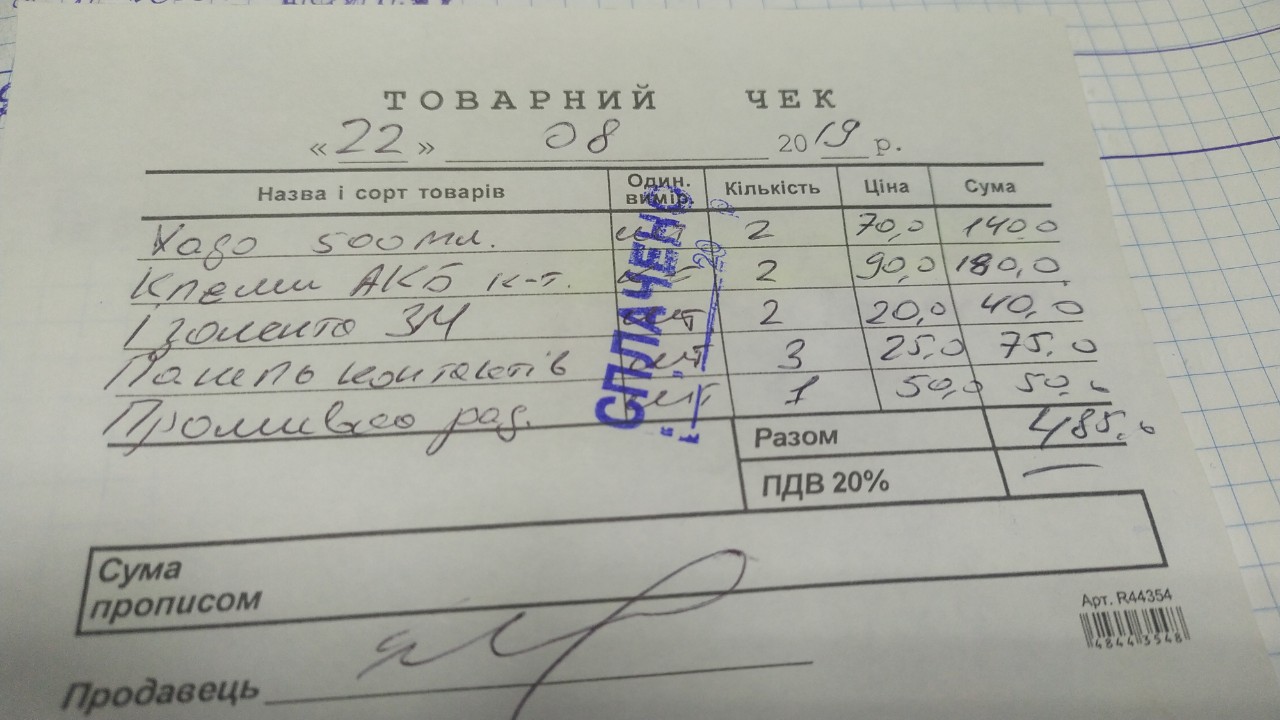 ТОВАРНИЙ ЧЕК
«22» 08 2019 р.
Назва і сорт товарів Один. вимір. Кількість Ціна Сума
Хадо 500 мл. шт 2 70,0 140,0
Клеми АКБ к-т. шт 2 90,0 180,0
Ізолента 3М шт 2 20,0 40,0
Панель контактів шт 3 25,0 75,0
Промивка рад. шт 1 50,0 50,0
СПЛАЧЕНО
20
Разом 485,0
ПДВ 20% —
Сума
прописом
Арт. R44354
48443548
Продавець